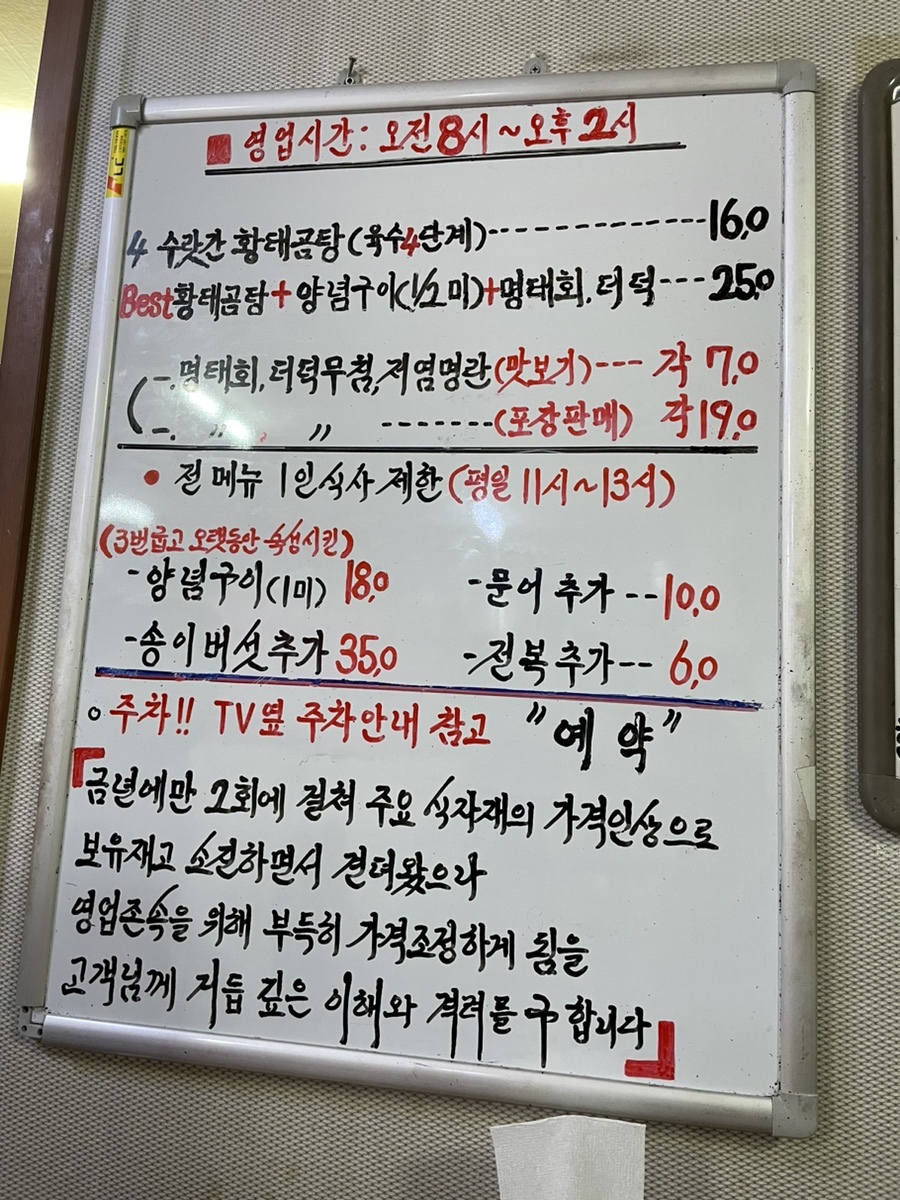 ■ 영업시간: 오전 8시 ~ 오후 2시
4 수랏간 황태곰탕(육수4단계)-------------16.0
Best황태곰탕+양념구이(1/2미)+명태회.더덕---25.0
(-.명태회,더덕무침,저염명란(맛보기)--- 각 7.0
-. 〃 , 〃 -------(포장판매) 각19.0
• 전 메뉴 1인식사 제한(평일 11시~13시)
(3번굽고 오랫동안 숙성시킨)
-양념구이(1미) 18.0 -문어 추가 --10.0
-송이버섯추가 35.0 -전복추가-- 6.0
○ 주차!! TV옆 주차안내 참고 "예 약"
「금년에만 2회에 걸쳐 주요 식자재의 가격인상으로
보유재고 소진하면서 견뎌왔으나
영업존속을 위해 부득히 가격조정하게 됨을
고객님께 거듭 깊은 이해와 격려를 구합니다」